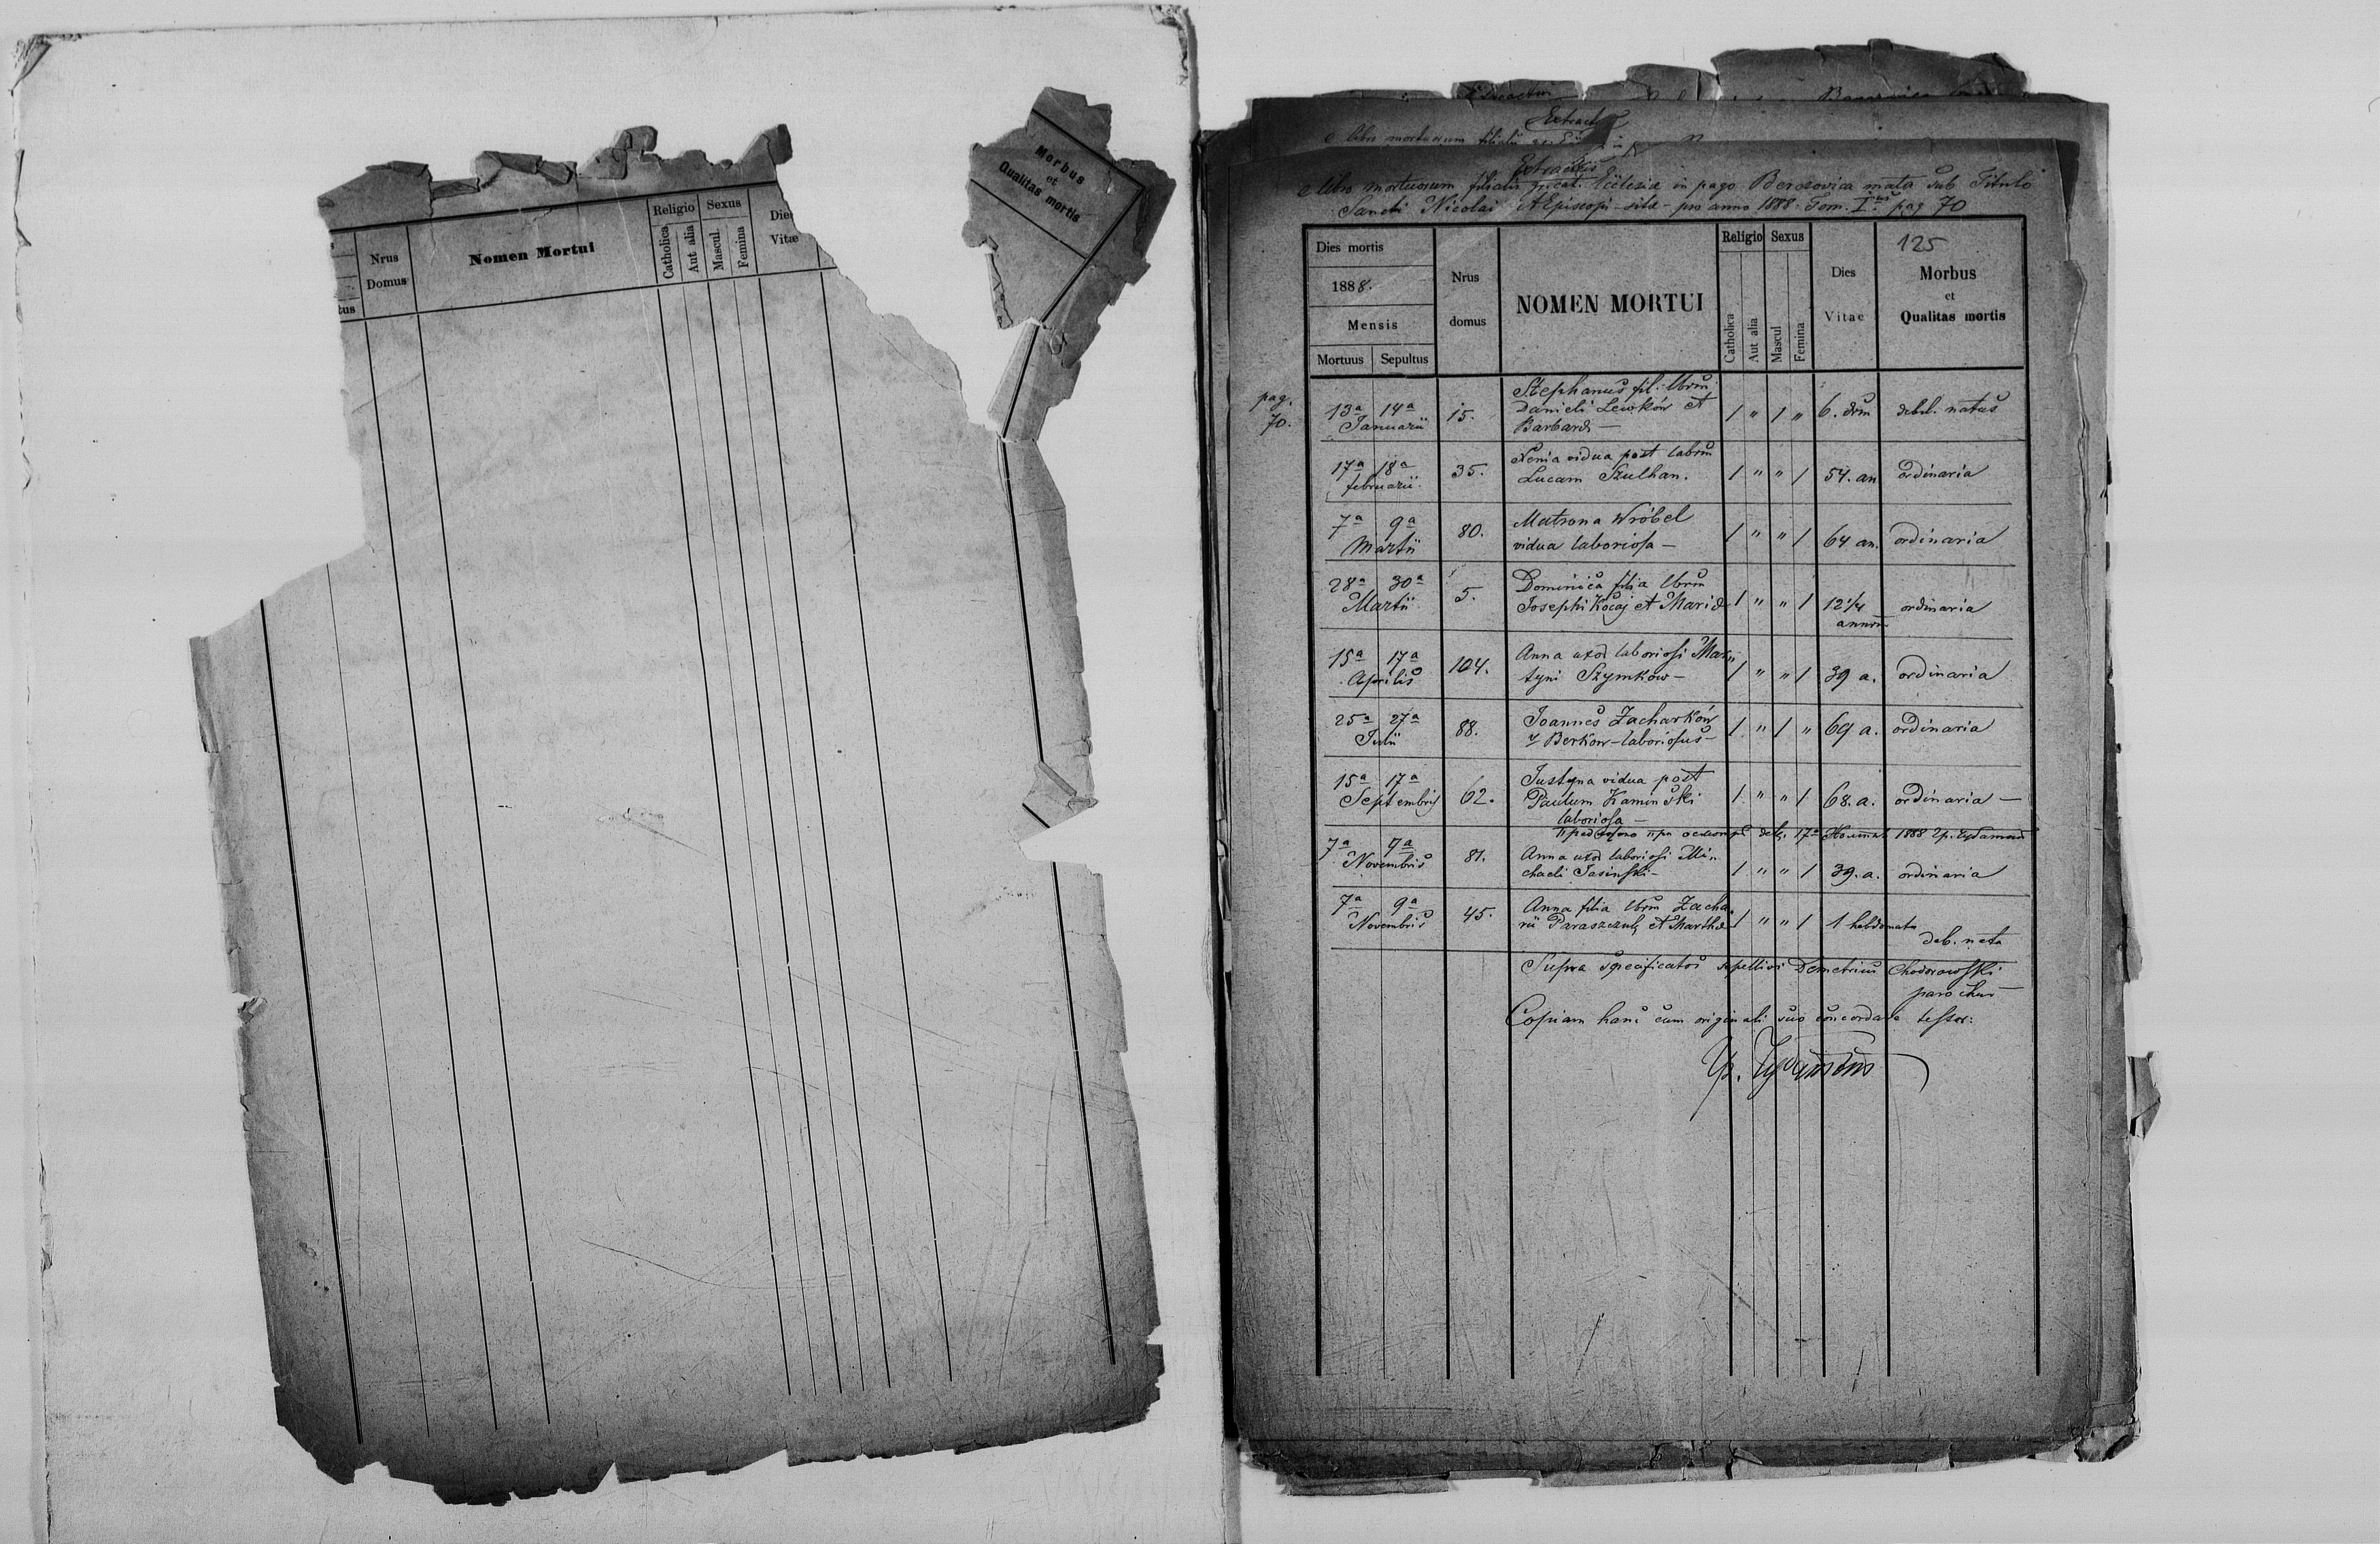 Morbus
et
Qualitas mortis
Nrus
Domus
Nomen Mortui
Religio
Sexus
Catholica
Aut alia
Mascul.
Femina
Dies
Vitæ
tus
Extract
e libro mortuorum filialis
Extractus
e libro mortuorum filialis gr. cat. Ecclesiæ in pago Berezovica mała sub Titulo
Sancti Nicolai AEpiscopi sitæ pro anno 1888. Tom. I. pag 70
Dies mortis
1888.
Mensis
Mortuus
Sepultus
Nrus
domus
NOMEN MORTUI
Religio
Sexus
Catholica
Aut alia
Mascul
Femina
Dies
Vitae
125
Morbus
et
Qualitas mortis
pag.
70.
Stephanus fil. lbrm
13a 14a 15. Danieli Lewków et 1 " 1 " 6. debil. natus
Januarii Barbaræ —
Xenia vidua post labrm
17a 18a 35. Lucam Szulhan. 1 " " 1 54. an ordinaria
februarii.
7a 9a 80. Matrona Wróbel 1 " " 1 64 an. ordinaria
Martii vidua laboriosa —
28a 30a 5. Dominica filia lbrm
Martii Josephi Kocaj et Mariæ 1 " " 1 12 1/4 ordinaria
annor
15a 17a 104. Anna uxor laboriosi Mar
Aprilis tyni Szymków — 1 " " 1 39 a. ordinaria
25a 27a 88. Joannes Zacharków 1 " 1 " 69 a. ordinaria
Julii v Berkow - laboriosus -
15a 17a Justyna vidua post
Septembris 62. Paulum Kaminski 1 " " 1 68. a. ordinaria —
laboriosa —
1888
7a 9a 81. Anna uxor laboriosi Mi
Novembris chaeli Jasinski - 1 " " 1 39. a. ordinaria
7a 9a 45. Anna filia lbrm Zacha
Novembris rii Paraszczuk et Marthæ 1 " " 1 1 hebdomata
deb. nata
Supra specificatos sepelivi Demetrius Chodorowski
parochus —
Copiam hanc cum originali suo concordare testor: